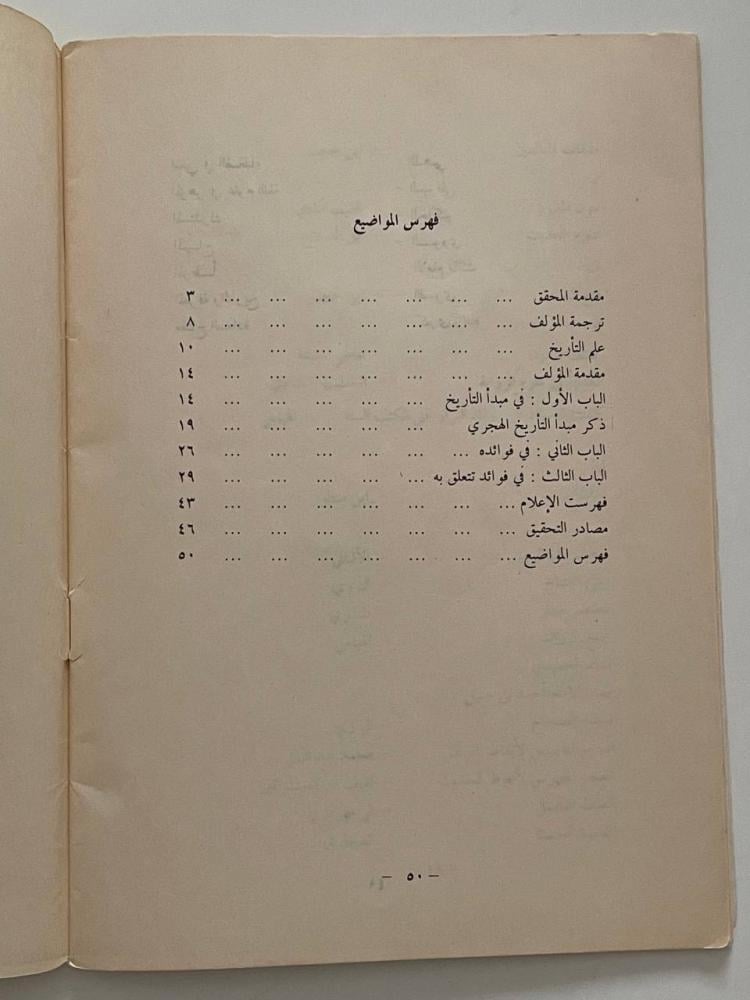 فهرس المواضيع
مقدمة المحقق ... ... ... ... ... ... ... ٣
ترجمة المؤلف ... ... ... ... ... ... ... ٨
علم التأريخ ... ... ... ... ... ... ... ١٠
مقدمة المؤلف ... ... ... ... ... ... ... ١٤
الباب الأول : في مبدأ التأريخ ... ... ... ... ... ١٤
ذكر مبدأ التأريخ الهجري ... ... ... ... ... ١٩
الباب الثاني : في فوائده ... ... ... ... ... ... ٢٦
الباب الثالث : في فوائد تتعلق به ... ... ... ... ... ٢٩
فهرست الإعلام ... ... ... ... ... ... ... ٤٣
مصادر التحقيق ... ... ... ... ... ... ... ٤٦
فهرس المواضيع ... ... ... ... ... ... ... ٥٠
– ٥٠ –